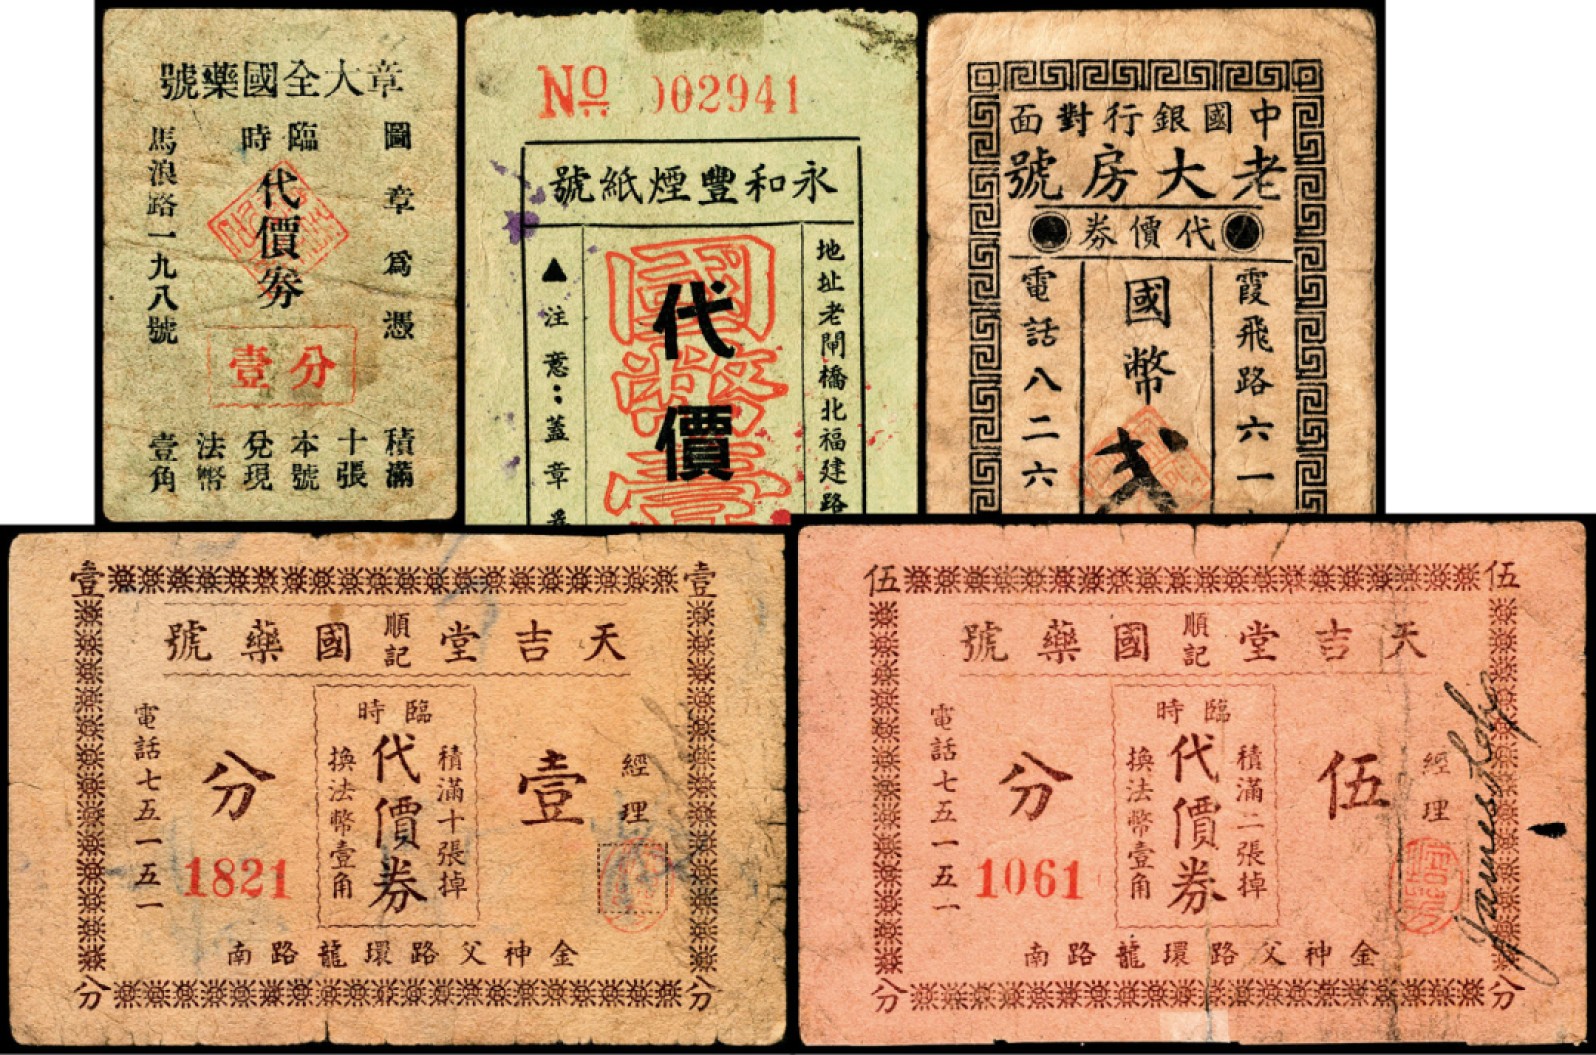 章大全國藥號
圖章爲憑
臨時
代價券
馬浪路一九八號
壹分
積滿
十張
本號
兌現
法幣
壹角
No 002941
永和豐煙紙號
地址老閘橋北福建路
國幣壹
代價
▲注意：蓋章
中國銀行對面
老大房號
代價券
霞飛路六一
國幣
弍
電話八二六
壹 壹
天吉堂國藥號
順記
經理
壹分
臨時
積滿十張掉
代價券
換法幣壹角
電話七五一五一
1821
金神父路環龍路南
分 分
伍 伍
天吉堂國藥號
順記
經理
伍分
臨時
積滿二張掉
代價券
換法幣壹角
電話七五一五一
1061
金神父路環龍路南
分 分